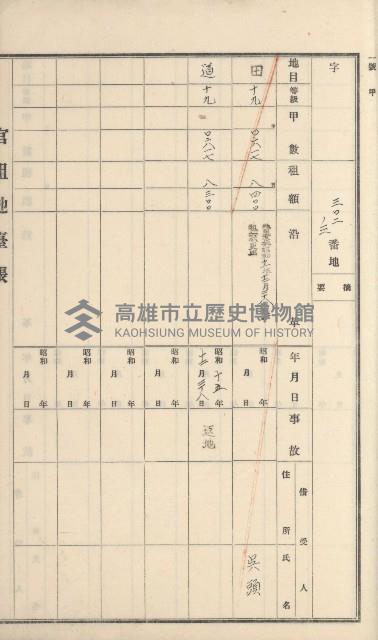 號甲
字
三〇二ノ三番地
摘要
地目
等級
甲數
租額
沿革
年月日
事故
借受人
住所氏名
田
十九
〇六八七
八四〇〇
昭和 年 月 日
吳頭
道
十九
〇六八七
八三〇〇
昭和十五年十二月二十八日
昭和 年 月 日
昭和 年 月 日
昭和 年 月 日
昭和 年 月 日
官租地臺帳
高雄市立歷史博物館
KAOHSIUNG MUSEUM OF HISTORY